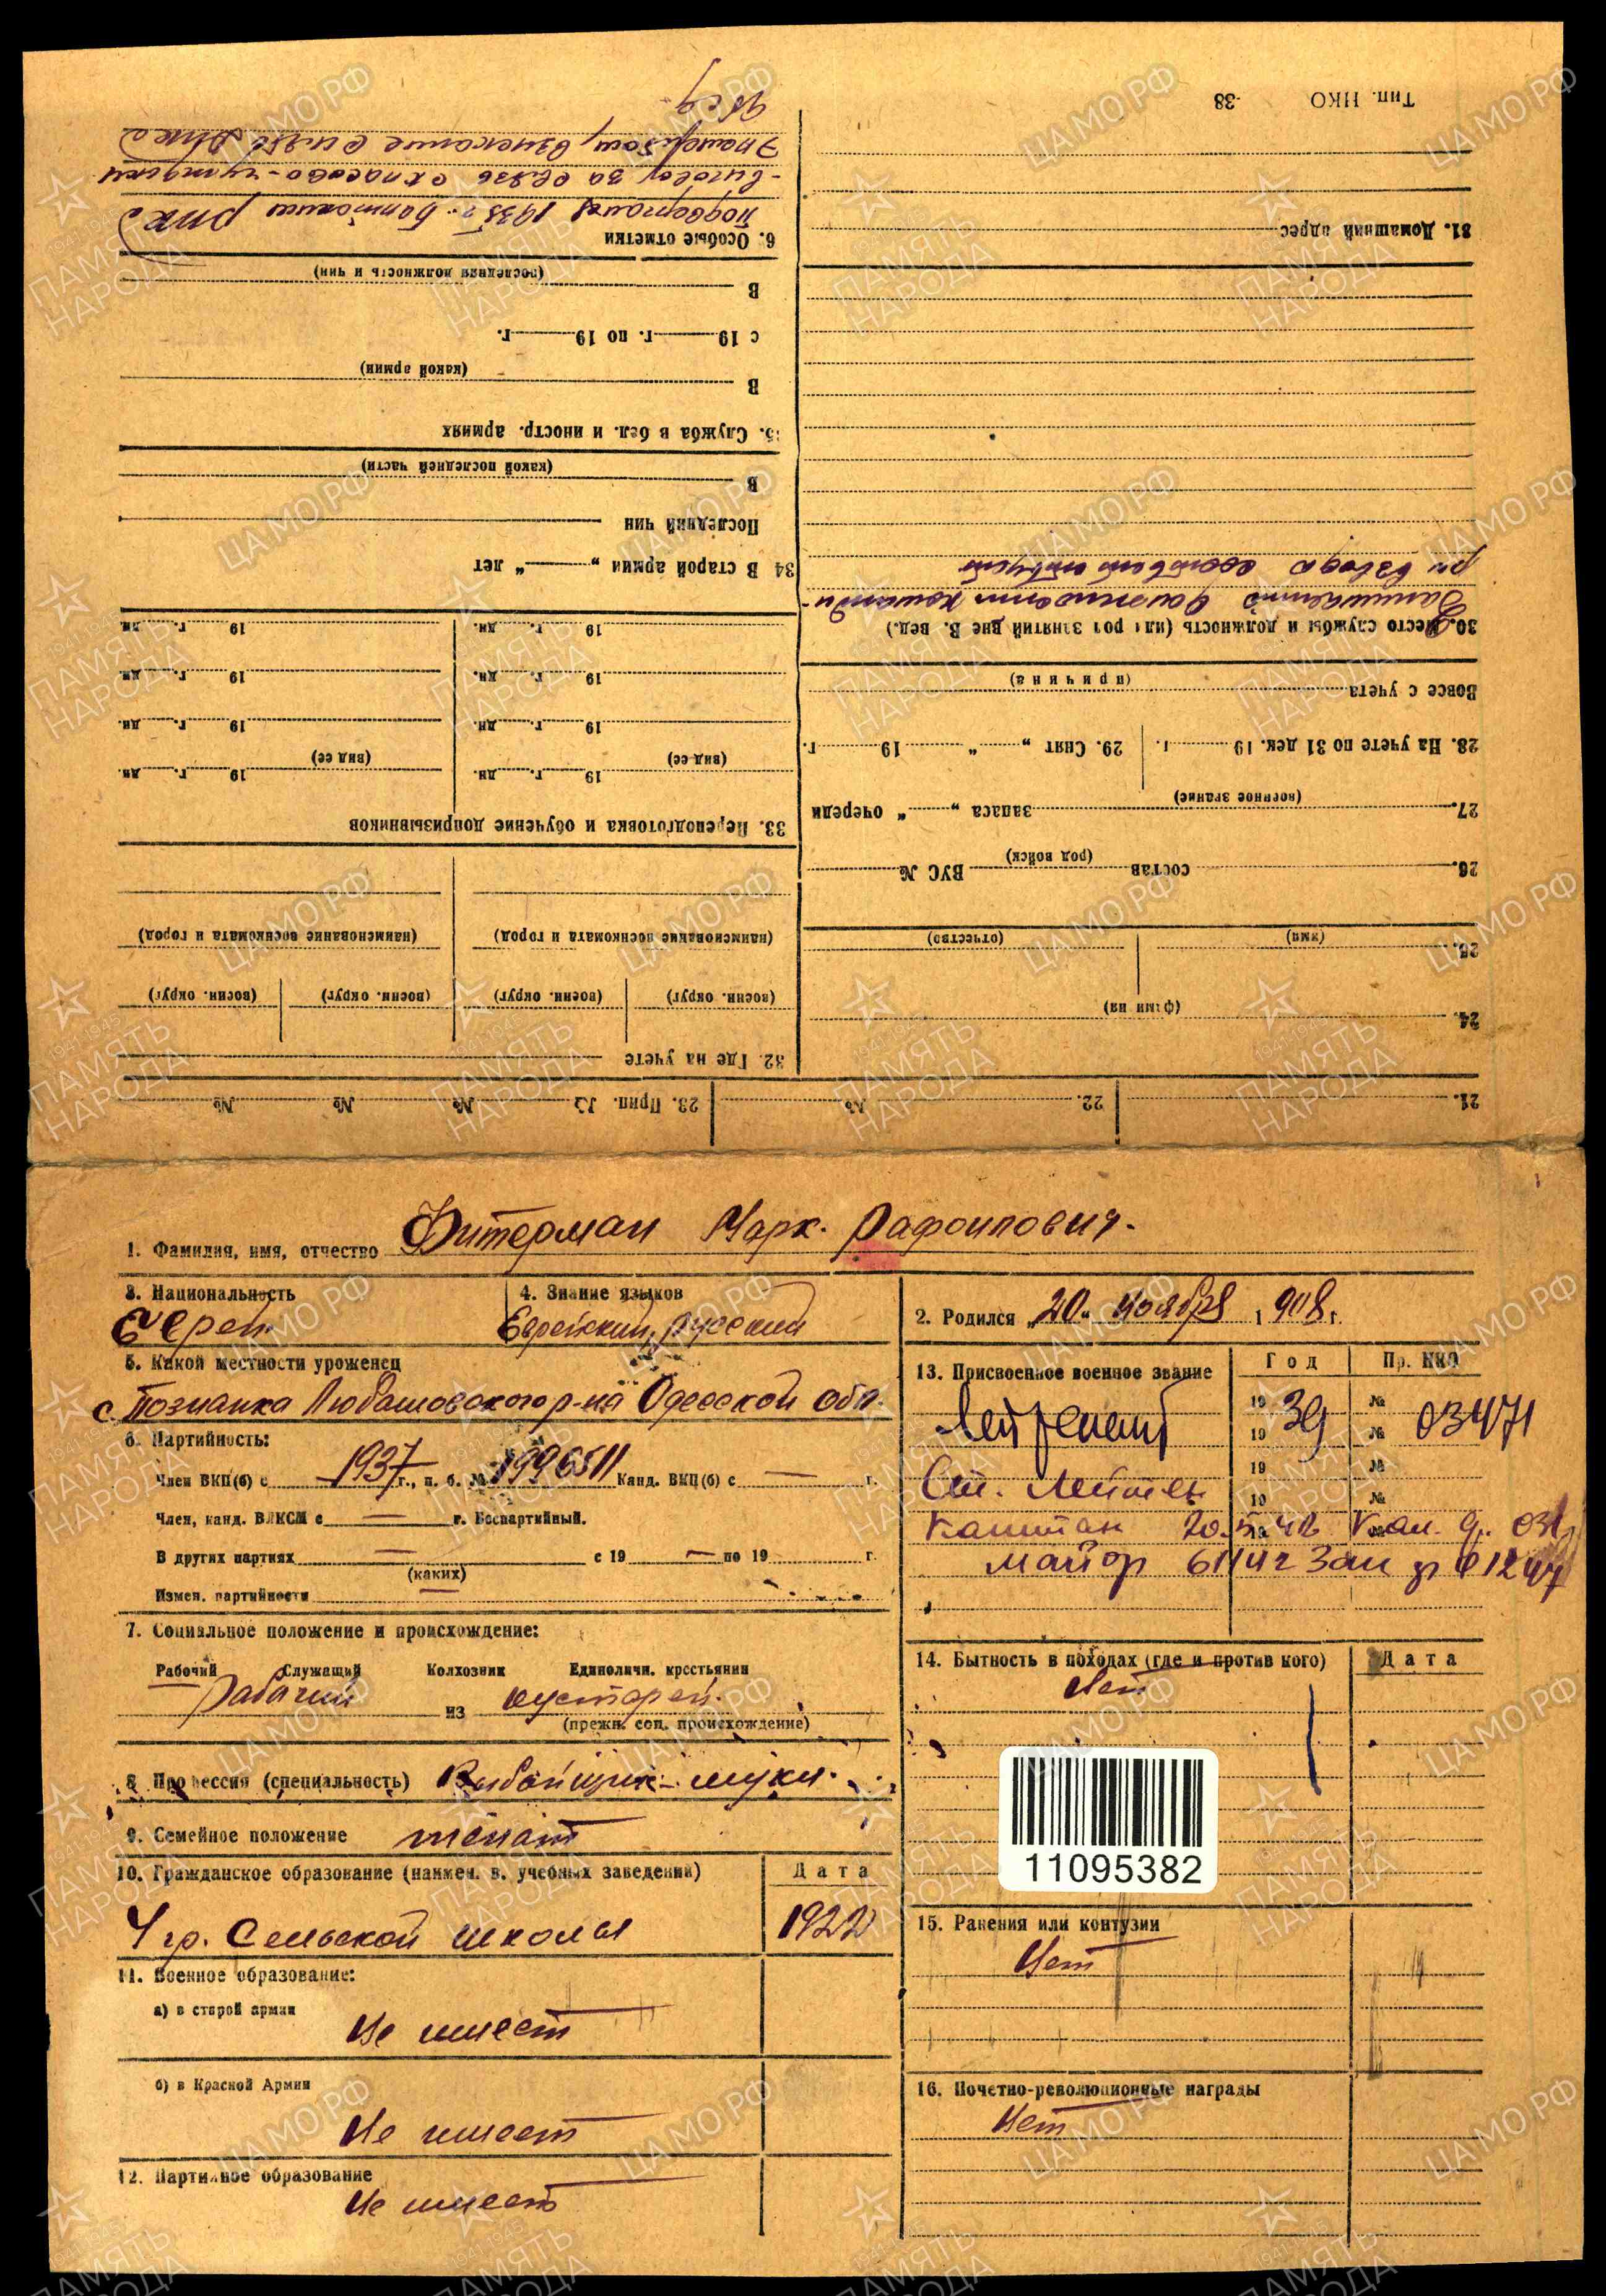 1. Фамилия, имя, отчество Фитерман Марк. Рафоилович.
3. Национальность
Еврей
4. Знание языков
Еврейский, русский
2. Родился „20" ноября 1908 г.
5. Какой местности уроженец
с. Познанка Любашовского р-на Одесской обл.
6. Партийность:
Член ВКП(б) с 1937 г., п. б. № 1996511 Канд. ВКП(б) с — г.
Член, канд. ВЛКСМ с — г. Беспартийный.
В других партиях — с 19 — по 19 г.
(каких)
Измен. партийности —
7. Социальное положение и происхождение:
Рабочий Служащий Колхозник Единоличн. крестьянин
Рабочий из кустарей.
(прежн. соц. происхождение)
8. Профессия (специальность) Выбойщик муки.
9. Семейное положение женат
10. Гражданское образование (наимен. в. учебных заведений) Дата
4 гр. Сельской школы 1922
11. Военное образование:
а) в старой армии
Не имеет
б) в Красной Армии
Не имеет
12. Партийное образование
Не имеет
13. Присвоенное военное звание Год Пр. НКО
Лейтенант 19 39 № 03471
19 №
19 №
Ст. Лейтен 19 №
Капитан 20.5.42
майор 6/1 42 Зап 01247
14. Бытность в походах (где и против кого) Дата
Нет
11095382
15. Ранения или контузии
Нет
16. Почетно-революционные награды
Нет
21.
22. №
23. Прип. № № № №
24.
(фамилия)
25.
(имя) (отчество)
26. состав ВУС №
(род войск)
27. запаса „ " очереди
(военное звание)
28. На учете по 31 дек. 19 г.
29. Снят „ " 19 г.
Вовсе с учета
(причина)
30. Место службы и должность (или род занятий вне В. вед.)
должность команди-
ра взвода
31. Домашний адрес
Тип. НКО -38
32. Где на учете
(воен. округ) (воен. округ) (воен. округ) (воен. округ)
(наименование военкомата и город) (наименование военкомата и город)
33. Переподготовка и обучение допризывников
19 г. дн. 19 г. дн.
(вид ее) (вид ее)
19 г. дн. 19 г. дн.
19 г. дн. 19 г. дн.
19 г. дн. 19 г. дн.
34 В старой армии „ " лет
Последний чин
В
(какой последней части)
35. Служба в бел. и иностр. армиях
В
(какой армии)
с 19 г. по 19 г.
В
(последняя должность и чин)
6. Особые отметки
Подвергался 1935 г.
выговор за связь с
взыскание снято
ЦАМО.РФ
1941-1945
ПАМЯТЬ
НАРОДА